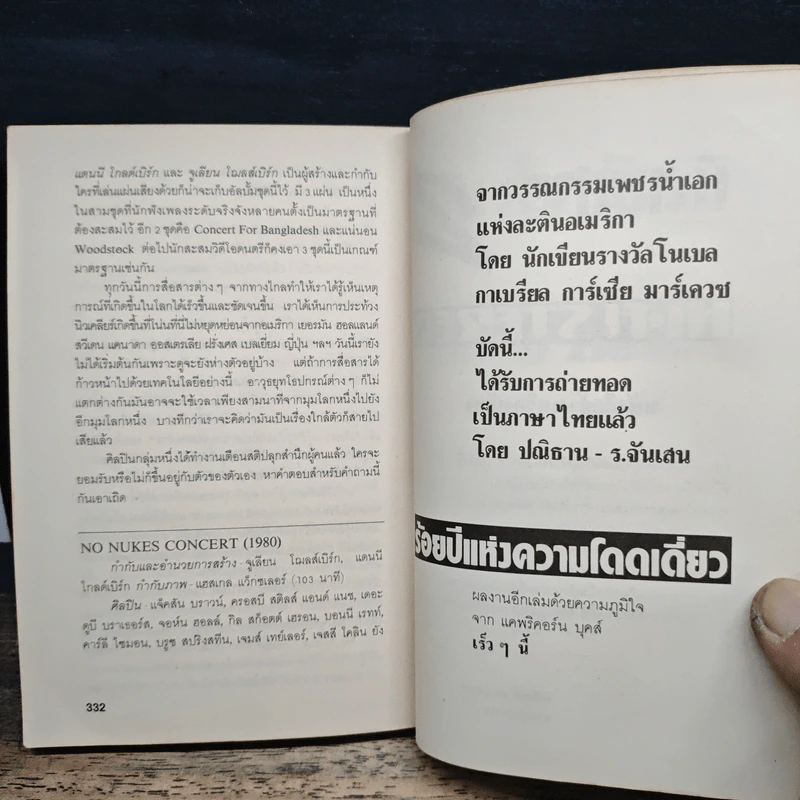 แดนนี โกลด์เบิร์ก และ จูเลียน โฌลส์เบิร์ก เป็นผู้สร้างและกำกับ
ใครที่เล่นแผ่นเสียงด้วยก็น่าจะเก็บอัลบั้มชุดนี้ไว้ มี 3 แผ่น เป็นหนึ่ง
ในสามชุดที่นักฟังเพลงระดับจริงจังหลายคนตั้งเป็นมาตรฐานที่
ต้องสะสมไว้ อีก 2 ชุดคือ Concert For Bangladesh และแน่นอน
Woodstock ต่อไปนักสะสมวิดีโอดนตรีก็คงเอา 3 ชุดนี้เป็นเกณฑ์
มาตรฐานเช่นกัน
ทุกวันนี้การสื่อสารต่าง ๆ จากทางไกลทำให้เราได้รู้เห็นเหตุ
การณ์ที่เกิดขึ้นในโลกได้เร็วขึ้นและชัดเจนขึ้น เราได้เห็นการประท้วง
นิวเคลียร์เกิดขึ้นที่โน่นที่นี่ไม่หยุดหย่อนจากอเมริกา เยอรมัน ฮอลแลนด์
สวีเดน แคนาดา ออสเตรเลีย ฝรั่งเศส เบลเยี่ยม ญี่ปุ่น ฯลฯ วันนี้เรายัง
ไม่ได้เริ่มต้นกันเพราะดูจะยังห่างตัวอยู่บ้าง แต่ถ้าการสื่อสารได้
ก้าวหน้าไปด้วยเทคโนโลยีอย่างนี้ อาวุธยุทโธปกรณ์ต่าง ๆ ก็ไม่
แตกต่างกันมันอาจจะใช้เวลาเพียงสามนาทีจากมุมโลกหนึ่งไปยัง
อีกมุมโลกหนึ่ง บางทีกว่าเราจะคิดว่ามันเป็นเรื่องใกล้ตัวก็สายไป
เสียแล้ว
ศิลปินกลุ่มหนึ่งได้ทำงานเตือนสติปลุกสำนึกผู้คนแล้ว ใครจะ
ยอมรับหรือไม่ก็ขึ้นอยู่กับตัวของตัวเอง หาคำตอบสำหรับคำถามนี้
กันเอาเถิด
NO NUKES CONCERT (1980)
กำกับและอำนวยการสร้าง - จูเลียน โฌลส์เบิร์ก, แดนนี
โกลด์เบิร์ก กำกับภาพ - แฮสเกล แว๊กซเลอร์ (103 นาที)
ศิลปิน - แจ็คสัน บราวน์, ครอสบี สติลส์ แอนด์ แนช, เดอะ
ดูบี บราเธอร์ส, จอห์น ฮอลล์, กิล สก็อตต์ เฮรอน, บอนนี เรทท์,
คาร์ลี ไซมอน, บรูซ สปริงสทีน, เจมส์ เทย์เลอร์, เจสสี โคลิน ยัง
332
จากวรรณกรรมเพชรน้ำเอก
แห่งละตินอเมริกา
โดย นักเขียนรางวัลโนเบล
กาเบรียล การ์เซีย มาร์เควซ
บัดนี้...
ได้รับการถ่ายทอด
เป็นภาษาไทยแล้ว
โดย ปณิธาน - ร.จันเสน
ร้อยปีแห่งความโดดเดี่ยว
ผลงานอีกเล่มด้วยความภูมิใจ
จาก แคพริคอร์น บุคส์
เร็ว ๆ นี้